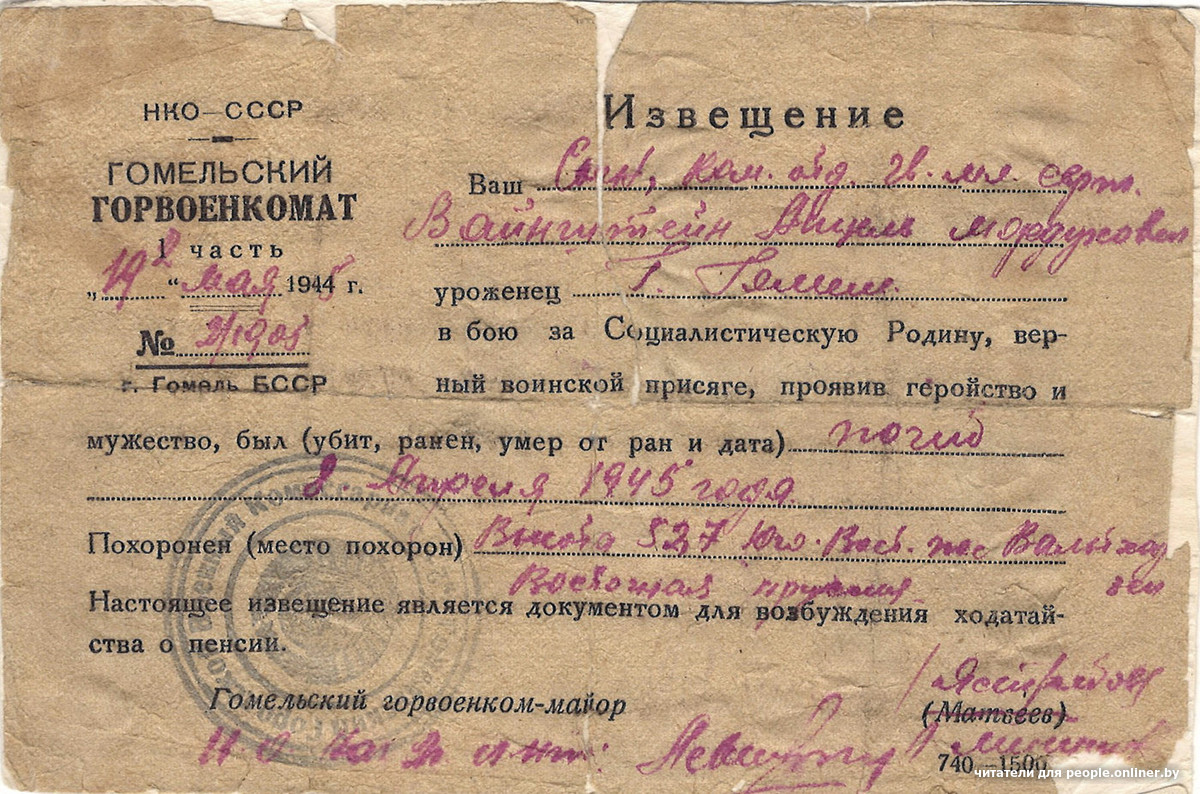 НКО—СССР
ГОМЕЛЬСКИЙ
ГОРВОЕНКОМАТ
1 часть
„19“ мая 1945 г.
№ 2/1905
г. Гомель БССР
Извещение
Ваш Сын, ком. отд. гв. мл серж.
Вайнштейн Мордухович
уроженец г. Гомель
в бою за Социалистическую Родину, вер-
ный воинской присяге, проявив геройство и
мужество, был (убит, ранен, умер от ран и дата) погиб
8 Апреля 1945 года.
Похоронен (место похорон) Высота 52,7 Юго-Вост. пос
Восточная пруссия
Настоящее извещение является документом для возбуждения ходатай-
ства о пенсии.
Гомельский горвоенком-майор
(Матвеев)
740—1500
читатели для people.onliner.by